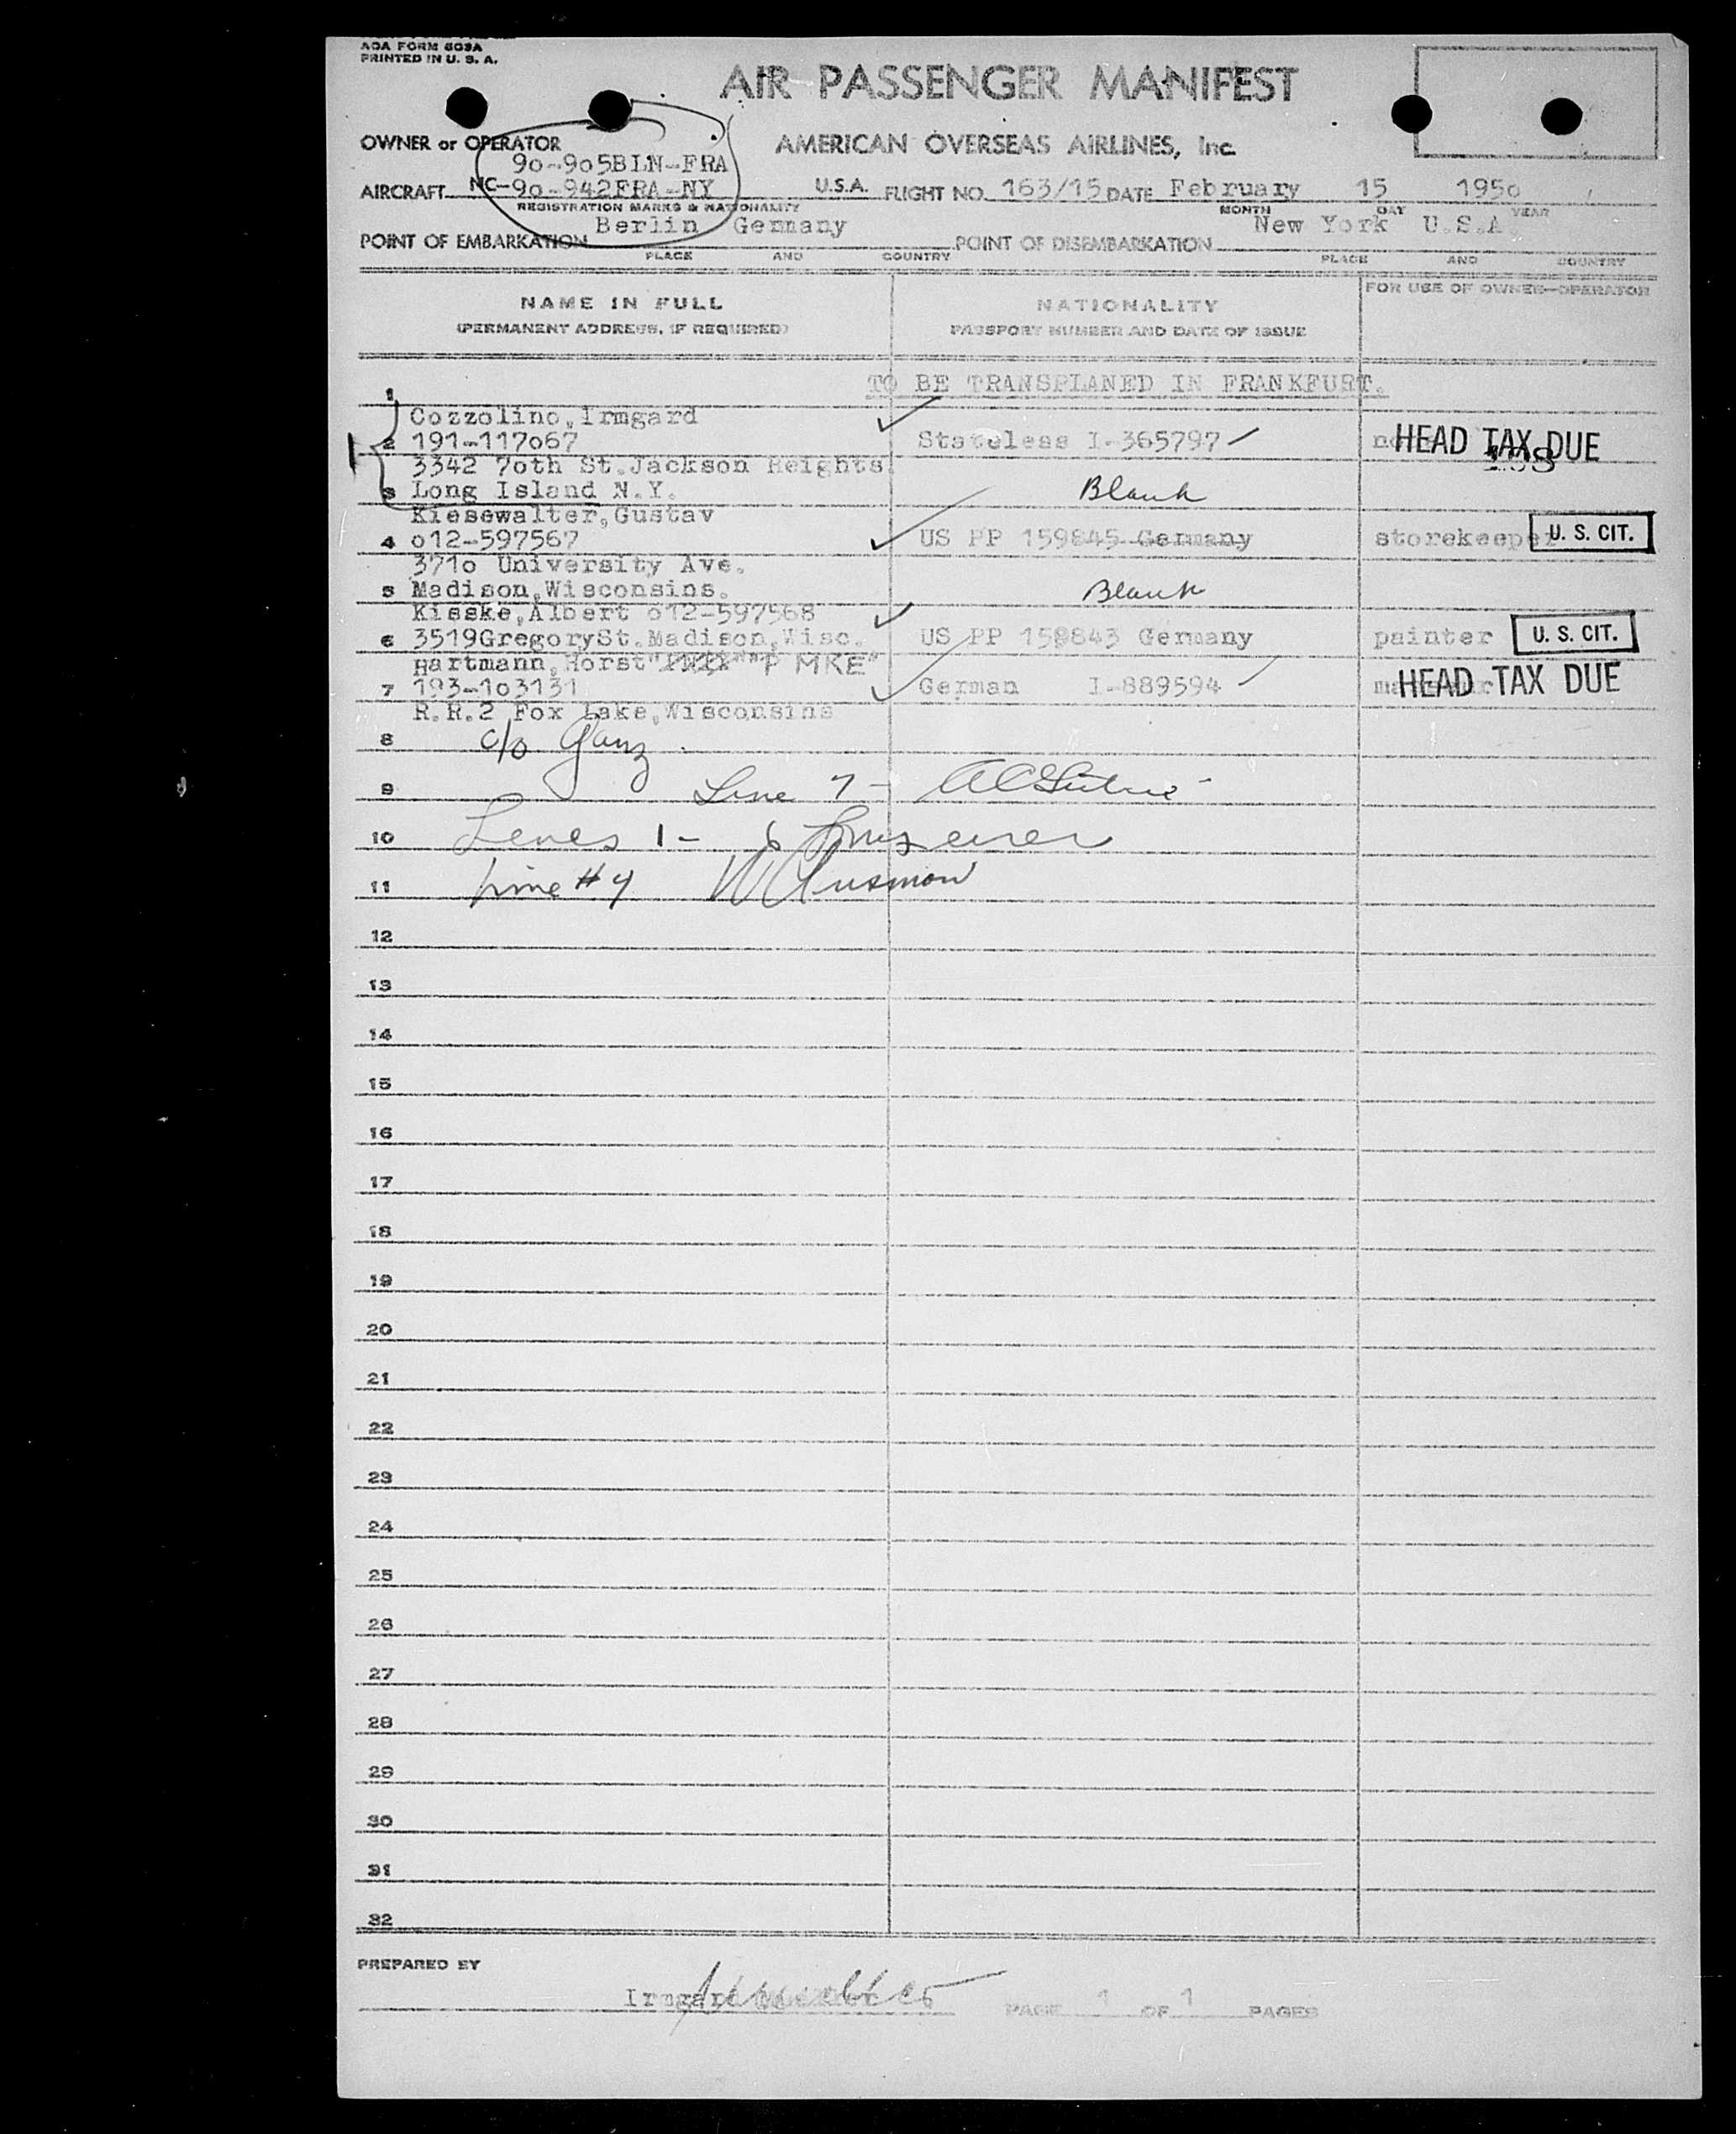 AOA FORM 603A
PRINTED IN U. S. A.
AIR PASSENGER MANIFEST
OWNER or OPERATOR AMERICAN OVERSEAS AIRLINES, Inc.
9o-9o5BLN-FRA
AIRCRAFT NC-9o-942FRA-NY U.S.A. FLIGHT NO. 163/15 DATE February 15 195o
REGISTRATION MARKS & NATIONALITY MONTH DAY YEAR
POINT OF EMBARKATION Berlin Germany POINT OF DISEMBARKATION New York U.S.A.
PLACE AND COUNTRY PLACE AND COUNTRY
NAME IN FULL NATIONALITY FOR USE OF OWNER—OPERATOR
(PERMANENT ADDRESS, IF REQUIRED) PASSPORT NUMBER AND DATE OF ISSUE
1 TO BE TRANSPLANED IN FRANKFURT.
Cozzolino,Irmgard
2 191-117o67 Stateless I-365797 HEAD TAX DUE
3342 7oth St.Jackson Heights
3 Long Island N.Y. Blank
Kiesewalter,Gustav
4 o12-597567 US PP 159845 Germany storekeeper U. S. CIT.
371o University Ave.
5 Madison,Wisconsins. Blank
Kisske,Albert o12-597568
6 3519GregorySt.Madison,Wisc. US PP 159843 Germany painter U. S. CIT.
Hartmann,Horst "P MKE"
7 193-1o3131 German I-889594 HEAD TAX DUE
R.R.2 Fox Lake,Wisconsins
8 c/o Ganz
9 Line 7 -
10 Lines 1 - 6
11 Line #4
12
13
14
15
16
17
18
19
20
21
22
23
24
25
26
27
28
29
30
31
32
PREPARED BY
Irmgard
PAGE 1 OF 1 PAGES